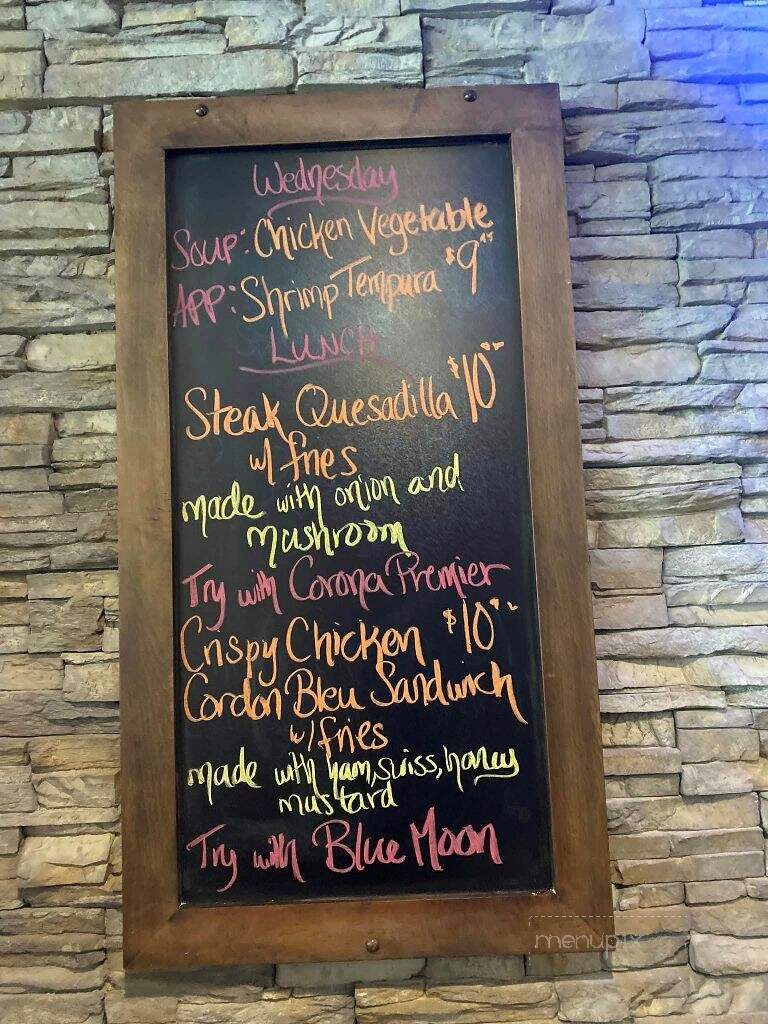 Wednesday
Soup: Chicken Vegetable
APP: Shrimp Tempura $9
LUNCH
Steak Quesadilla $10
w/ fries
made with onion and
mushroom
Try with Corona Premier
Crispy Chicken $10
Cordon Bleu Sandwich
w/ fries
made with ham, swiss, honey
mustard
Try with Blue Moon
menupix